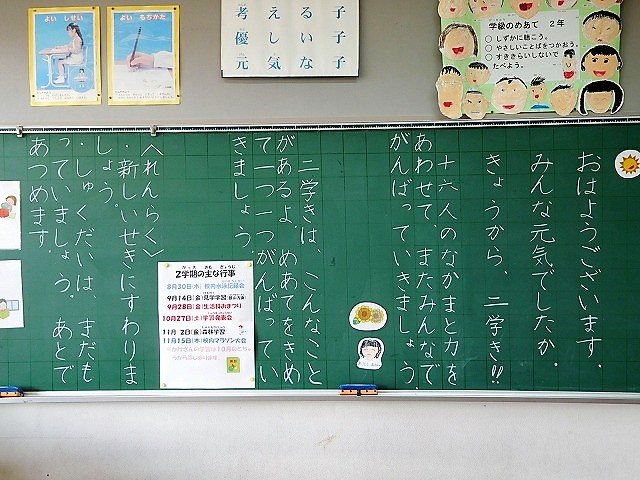 よい しせい
よい もちかた
考える子
優しい子
元気な子
学級のめあて 2年
○ しずかに聴こう。
○ やさしいことばをつかおう。
○ すききらいしないで
たべよう。
おはようございます。
みんな元気でしたか。
きょうから、二学き!!
十六人のなかまと力を
あわせて、またみんなで
がんばっていきましょう。
二学きは、こんなこと
があるよ。めあてをきめ
て一つ一つがんばってい
きましょう。
2学期の主な行事
8月30日(木) 校内水泳記録会
9月14日(金) 見学学習
9月28日(金) 生活科おまつり
10月27日(土) 学習発表会
11月 2日(金) 森林学習
11月15日(木) 校内マラソン大会
〈れんらく〉
・新しいせきにすわりま
しょう。
・しゅくだいは、まだも
っていましょう。あとで
あつめます。